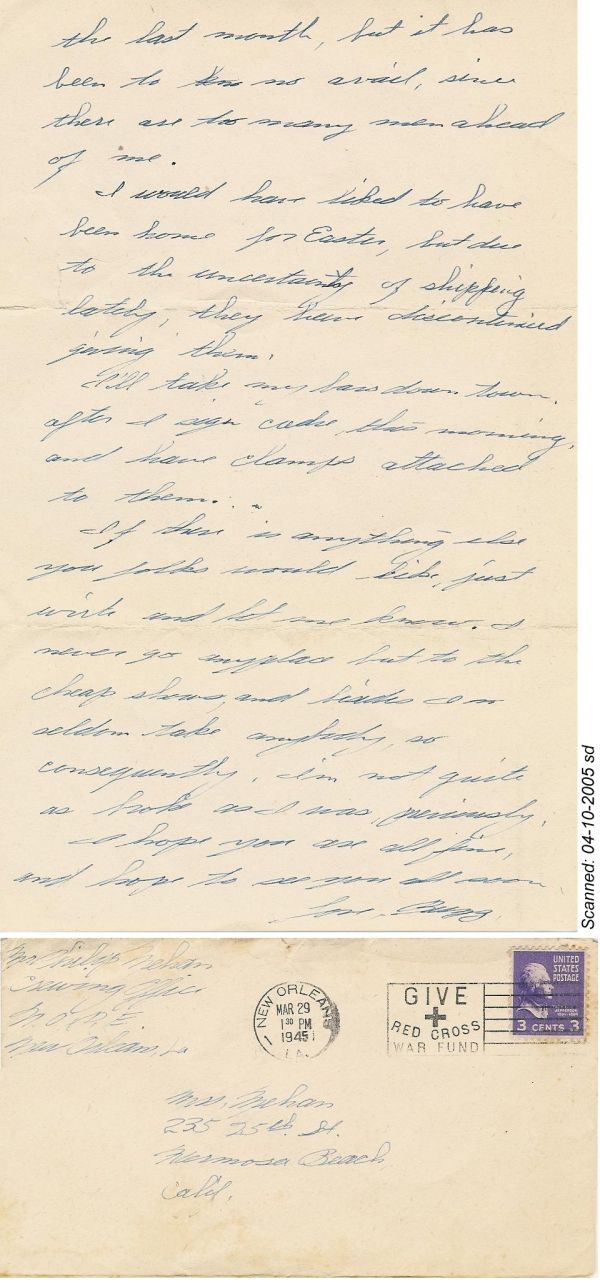 the last month, but it has
been to no avail, since
there are too many men ahead
of me.
I would have liked to have
been home for Easter, but due
to the uncertainty of shipping
lately, they have discontinued
giving them.
I'll take my bars down town,
after I sign this morning,
and have clamps attached
to them.
If there is anything else
you folks would like, just
write and let me know. I
never go anyplace but to the
cheap shows, and besides I
seldom take anybody, so
consequently, I'm not quite
as broke as I was, previously.
I hope you are all fine,
and hope to see you all soon.
Love,
Scanned: 04-10-2005 sd
Philip Mehan
Office
New Orleans, La
NEW ORLEANS
MAR 29
1 30 PM
1945
LA.
GIVE
RED CROSS
WAR FUND
UNITED
STATES
POSTAGE
JEFFERSON
3 CENTS 3
Mrs. Mehan
235 25th St.
Hermosa Beach
Calif.